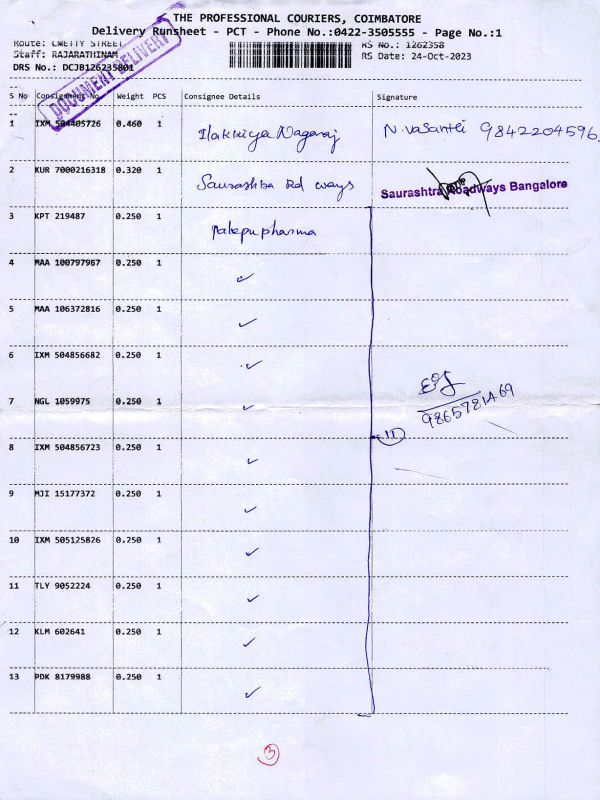 THE PROFESSIONAL COURIERS, COIMBATORE
Delivery Runsheet - PCT - Phone No.:0422-3505555 - Page No.:1
Route: CHETTY STREET
RS No.: 1262358
Staff: RAJARATHINAM
RS Date: 24-Oct-2023
DRS No.: DCJB126235801
DOCUMENT DELIVERY
S No Consignment No. Weight PCS Consignee Details Signature
1 IXM 504405726 0.460 1 Ilakkiya Nagaraj N. Vasanthi 9842204596.
2 KUR 7000216318 0.320 1 Saurashtra Rd ways Saurashtra Roadways Bangalore
3 KPT 219487 0.250 1 pharma
4 MAA 100797967 0.250 1 ✓
5 MAA 106372816 0.250 1 ✓
6 IXM 504856682 0.250 1 ✓
7 NGL 1059975 0.250 1 ✓
9865781469
11
8 IXM 504856723 0.250 1 ✓
9 MJI 15177372 0.250 1 ✓
10 IXM 505125826 0.250 1 ✓
11 TLY 9052224 0.250 1 ✓
12 KLM 602641 0.250 1 ✓
13 PDK 8179988 0.250 1 ✓
3